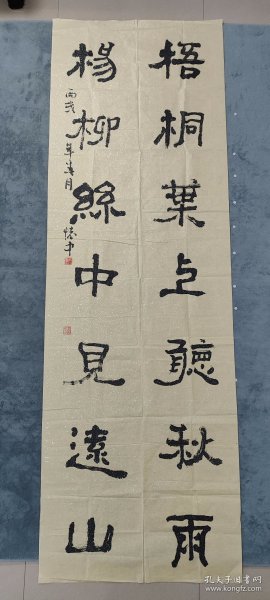 梧桐葉上聽秋雨
楊柳絲中見遠山
丙戌年
月
懷中
孔夫子旧书网